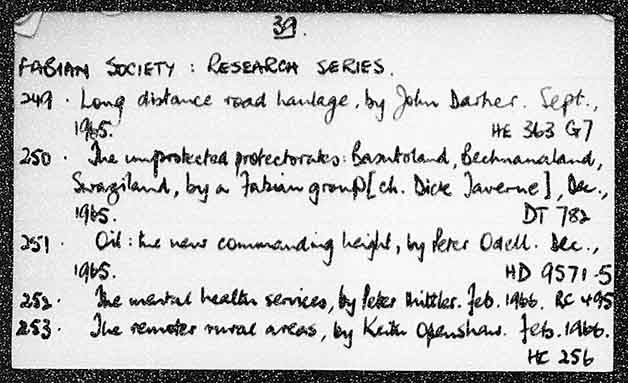 39.
FABIAN SOCIETY : RESEARCH SERIES.
249. Long distance road haulage, by John Darker. Sept.,
1965. HE 363 G7
250. The unprotected protectorates: Basutoland, Bechuanaland,
Swaziland, by a Fabian group [ch. Dick Taverne], Dec.,
1965. DT 782
251. Oil: the new commanding height, by Peter Odell. Dec.,
1965. HD 9571.5
252. The mental health services, by Peter Mittler. Feb. 1966. RC 495
253. The remoter rural areas, by Keith Openshaw. Feb. 1966.
HC 256